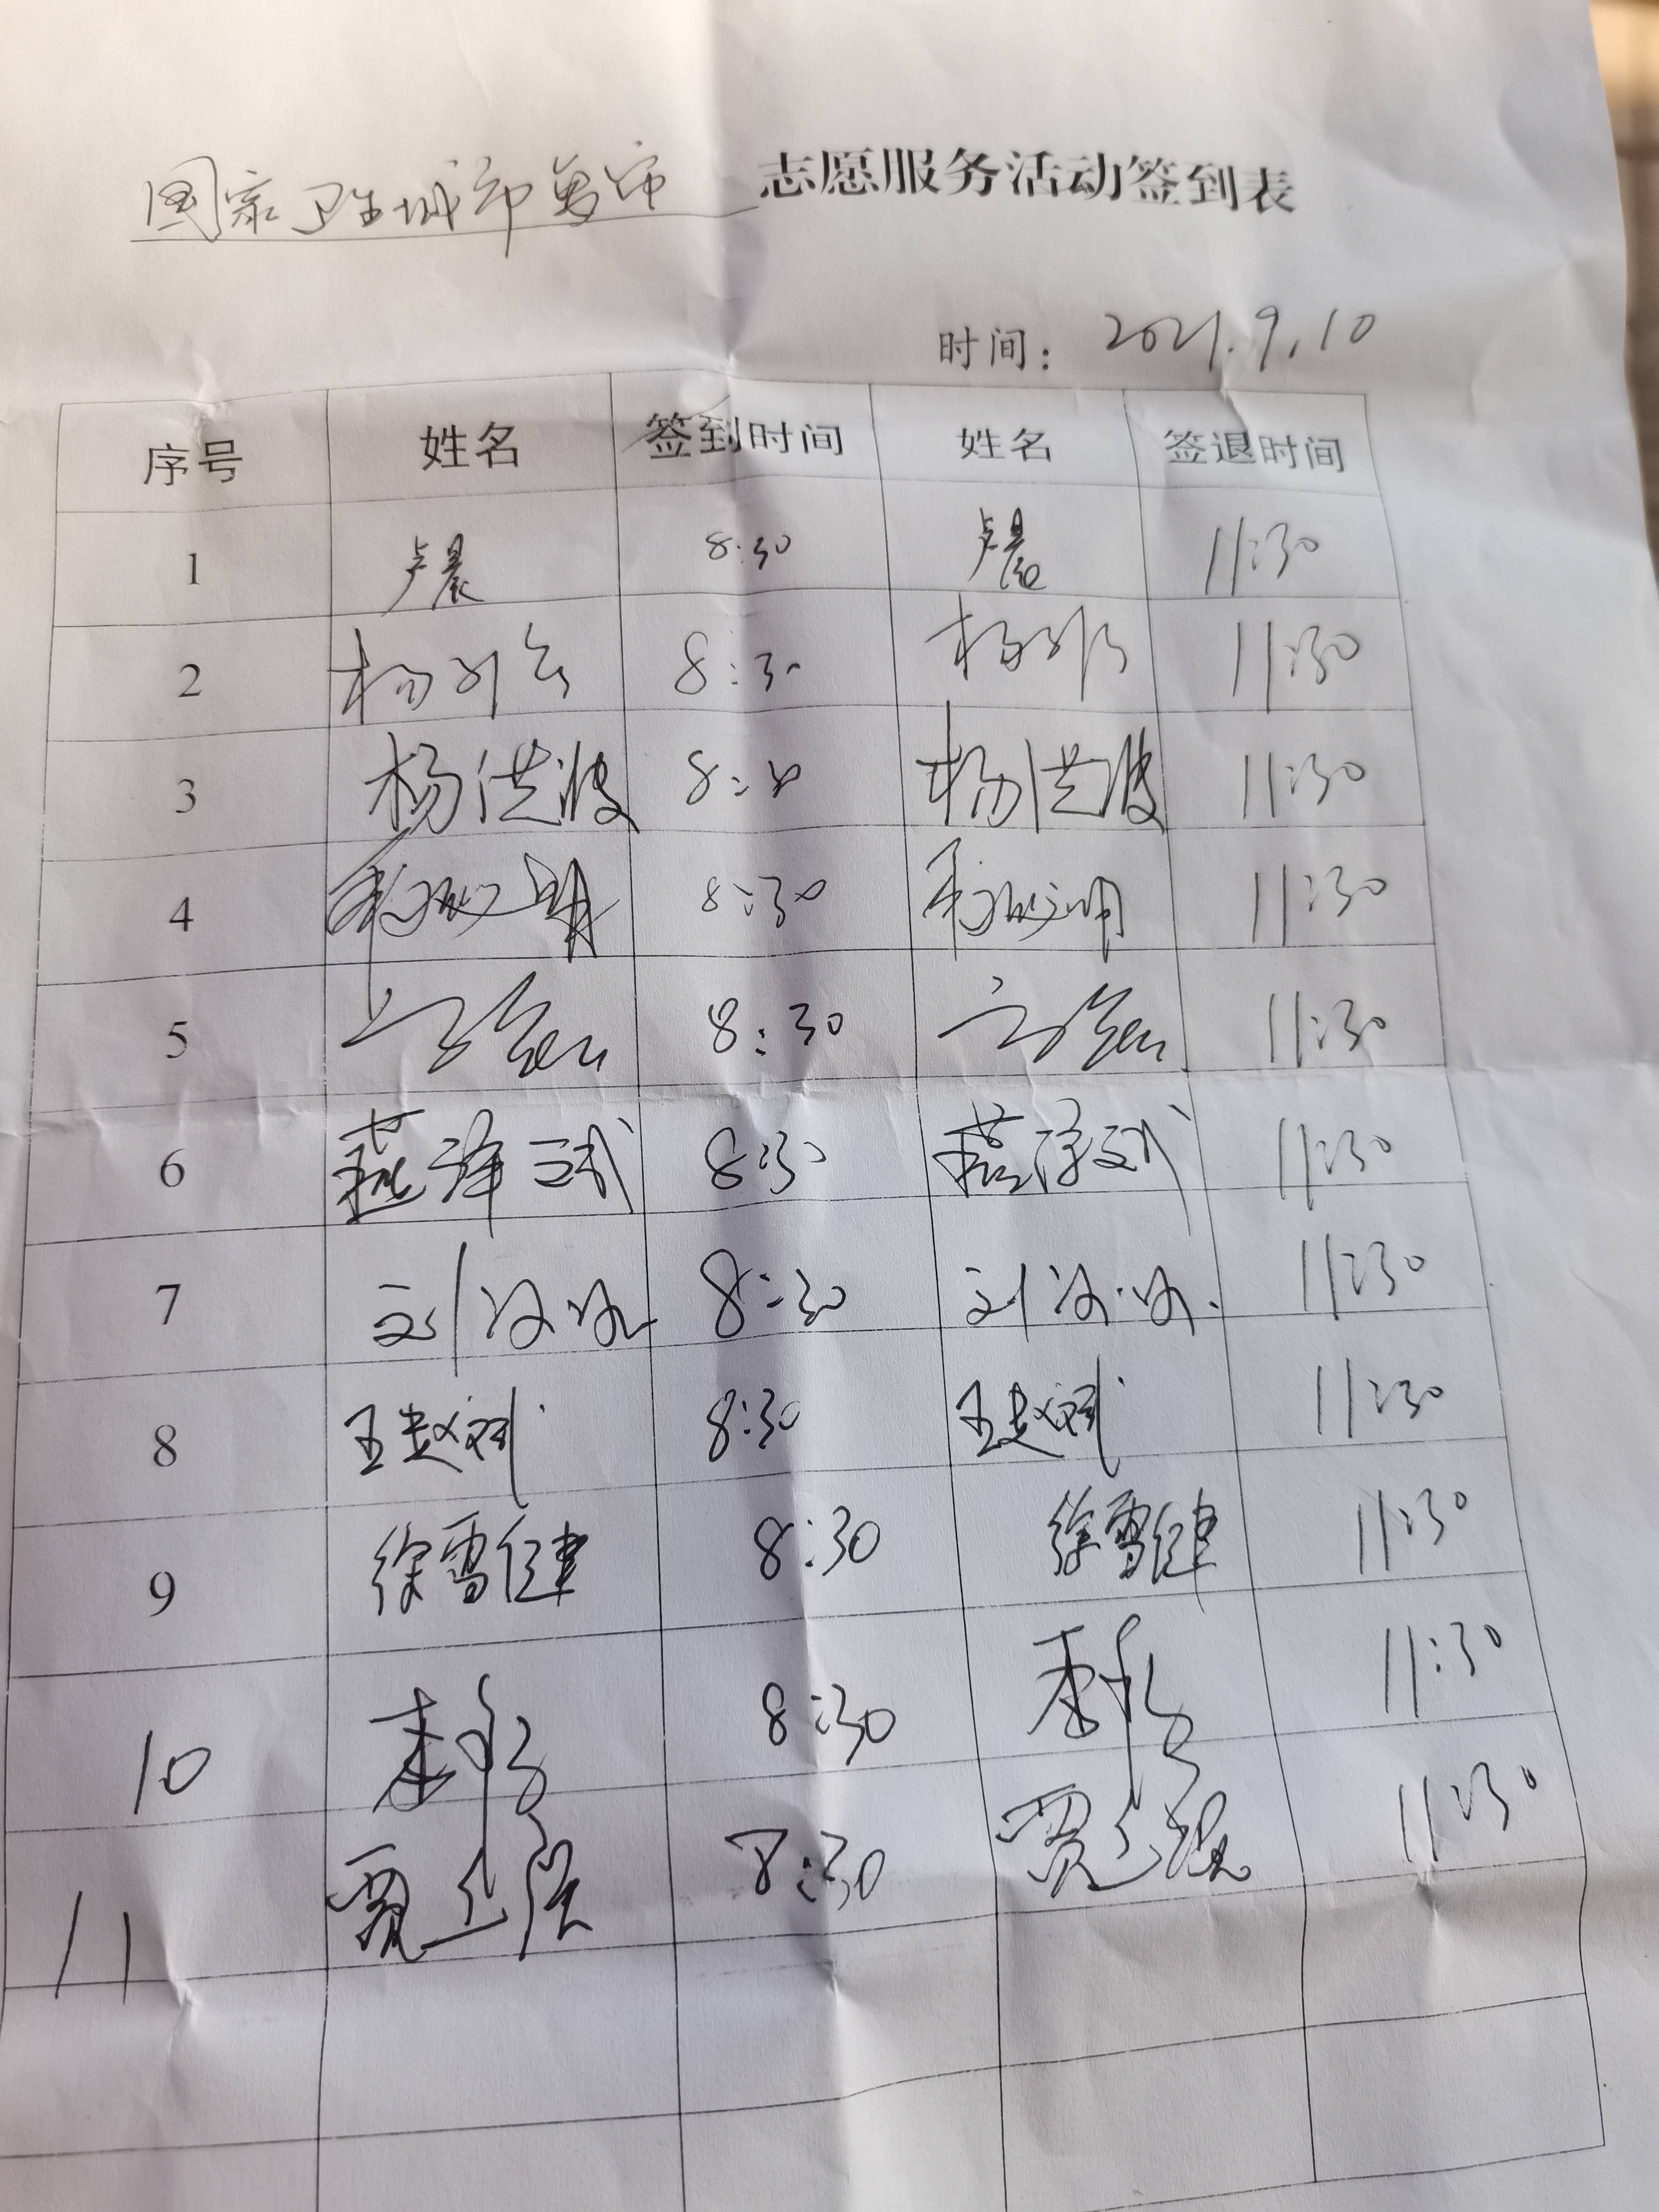 国家卫生城市复审 志愿服务活动签到表
时间: 2021.9.10
序号 姓名 签到时间 姓名 签退时间
1 卢晨 8:30 卢晨 11:30
2 杨 8:30 杨 11:30
3 杨洪波 8:30 杨洪波 11:30
4 8:30 11:30
5 8:30 11:30
6 燕泽斌 8:30 燕泽斌 11:30
7 刘冰冰 8:30 刘冰冰 11:30
8 王赵斌 8:30 王赵斌 11:30
9 徐雪健 8:30 徐雪健 11:30
10 8:30 11:30
11 贾 8:30 贾 11:30